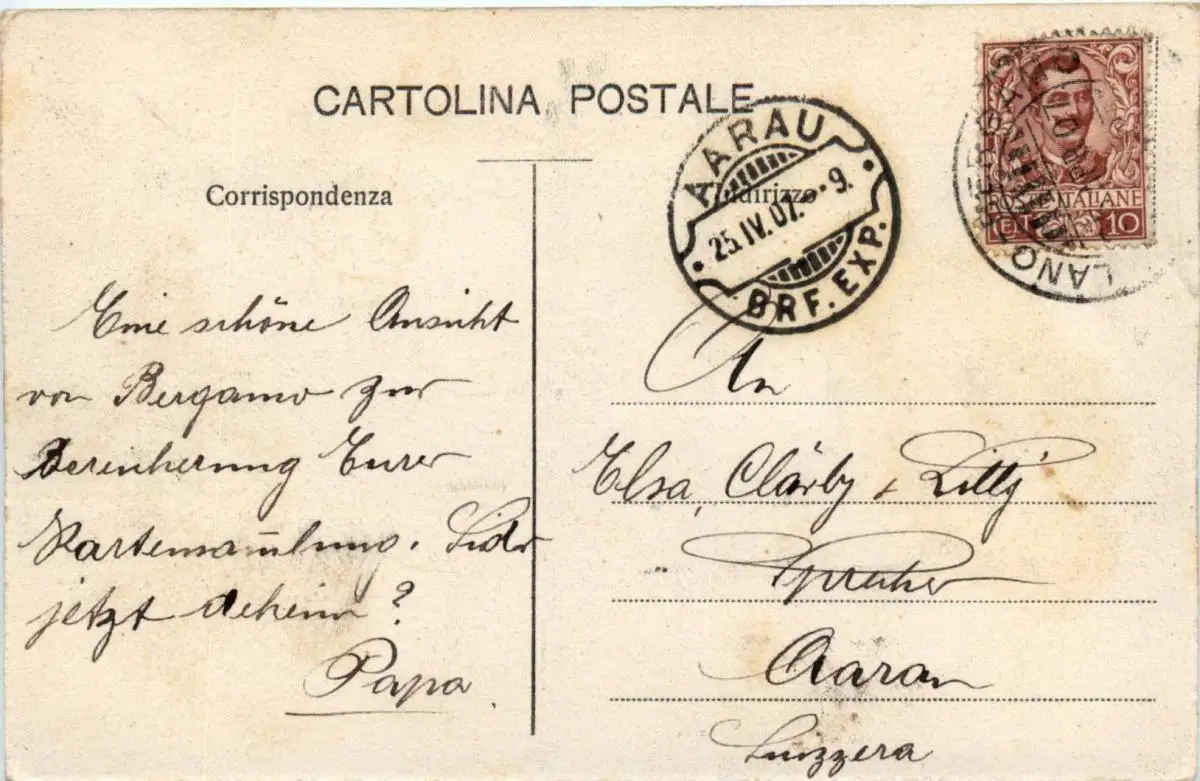 CARTOLINA POSTALE
Corrispondenza
Indirizzo
AARAU
25.IV.07.-9.
BRF. EXP.
POSTE ITALIANE
10
Eine schöne Ansicht
von Bergamo zur
Bereicherung Eurer
Kartensam̅lung. Seid Ihr
jetzt daheim?
Papa
An
Elsa, Clärly & Lilly
Sprecher
Aarau
Suizzera